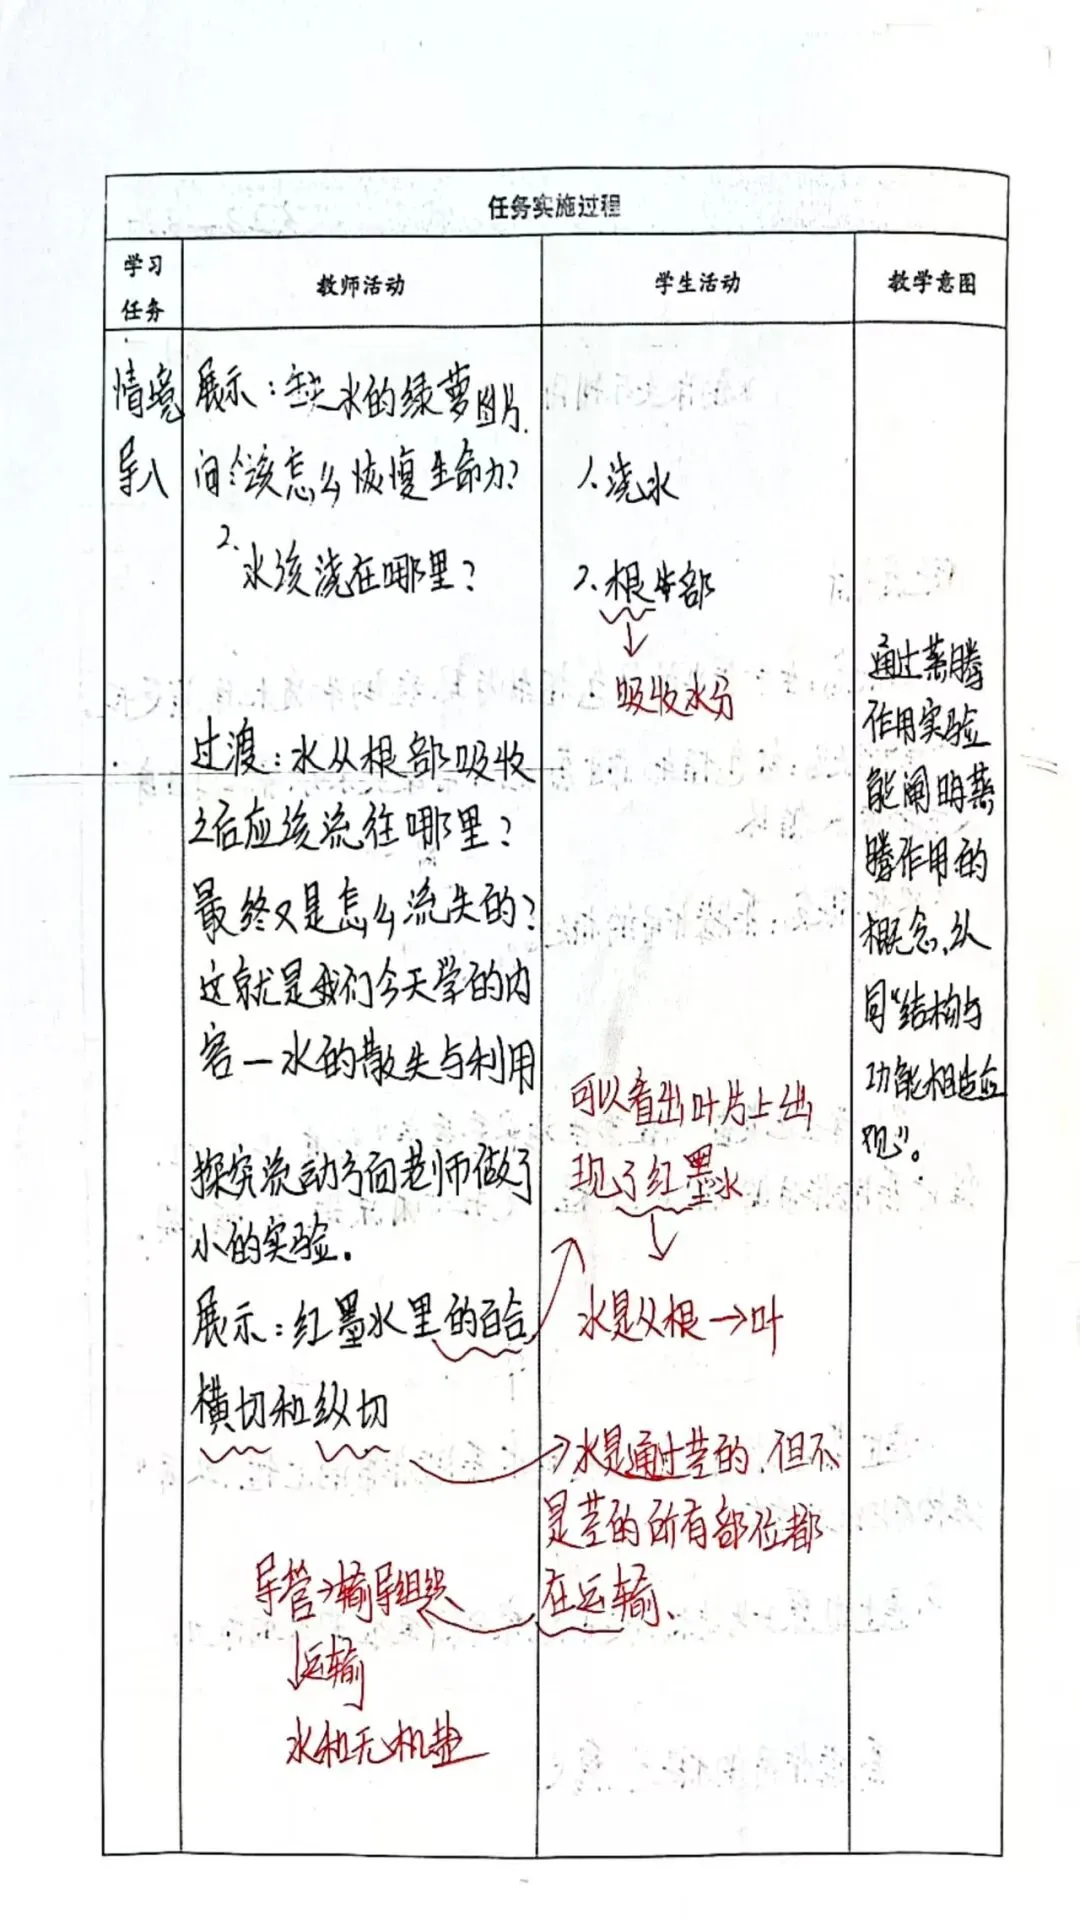 任务实施过程
学习
任务
教师活动
学生活动
教学意图
情境
导入
展示：缺水的绿萝图片.
问1.该怎么恢复生命力？
2.水该浇在哪里？
过渡：水从根部吸收
之后应该流往哪里？
最终又是怎么流失的？
这就是我们今天学的内
容一水的散失与利用
探究流动方向老师做了
小的实验.
展示：红墨水里的百合
横切和纵切
导管→输导组织
↓运输
水和无机盐
1.浇水
2.根部
↓
吸收水分
可以看出叶片上出
现了红墨水
↓
水是从根→叶
→水是通过茎的、但不
是茎的所有部位都
在运输、
通过蒸腾
作用实验
能阐明蒸
腾作用的
概念、认
同“结构与
功能相适应
观”。